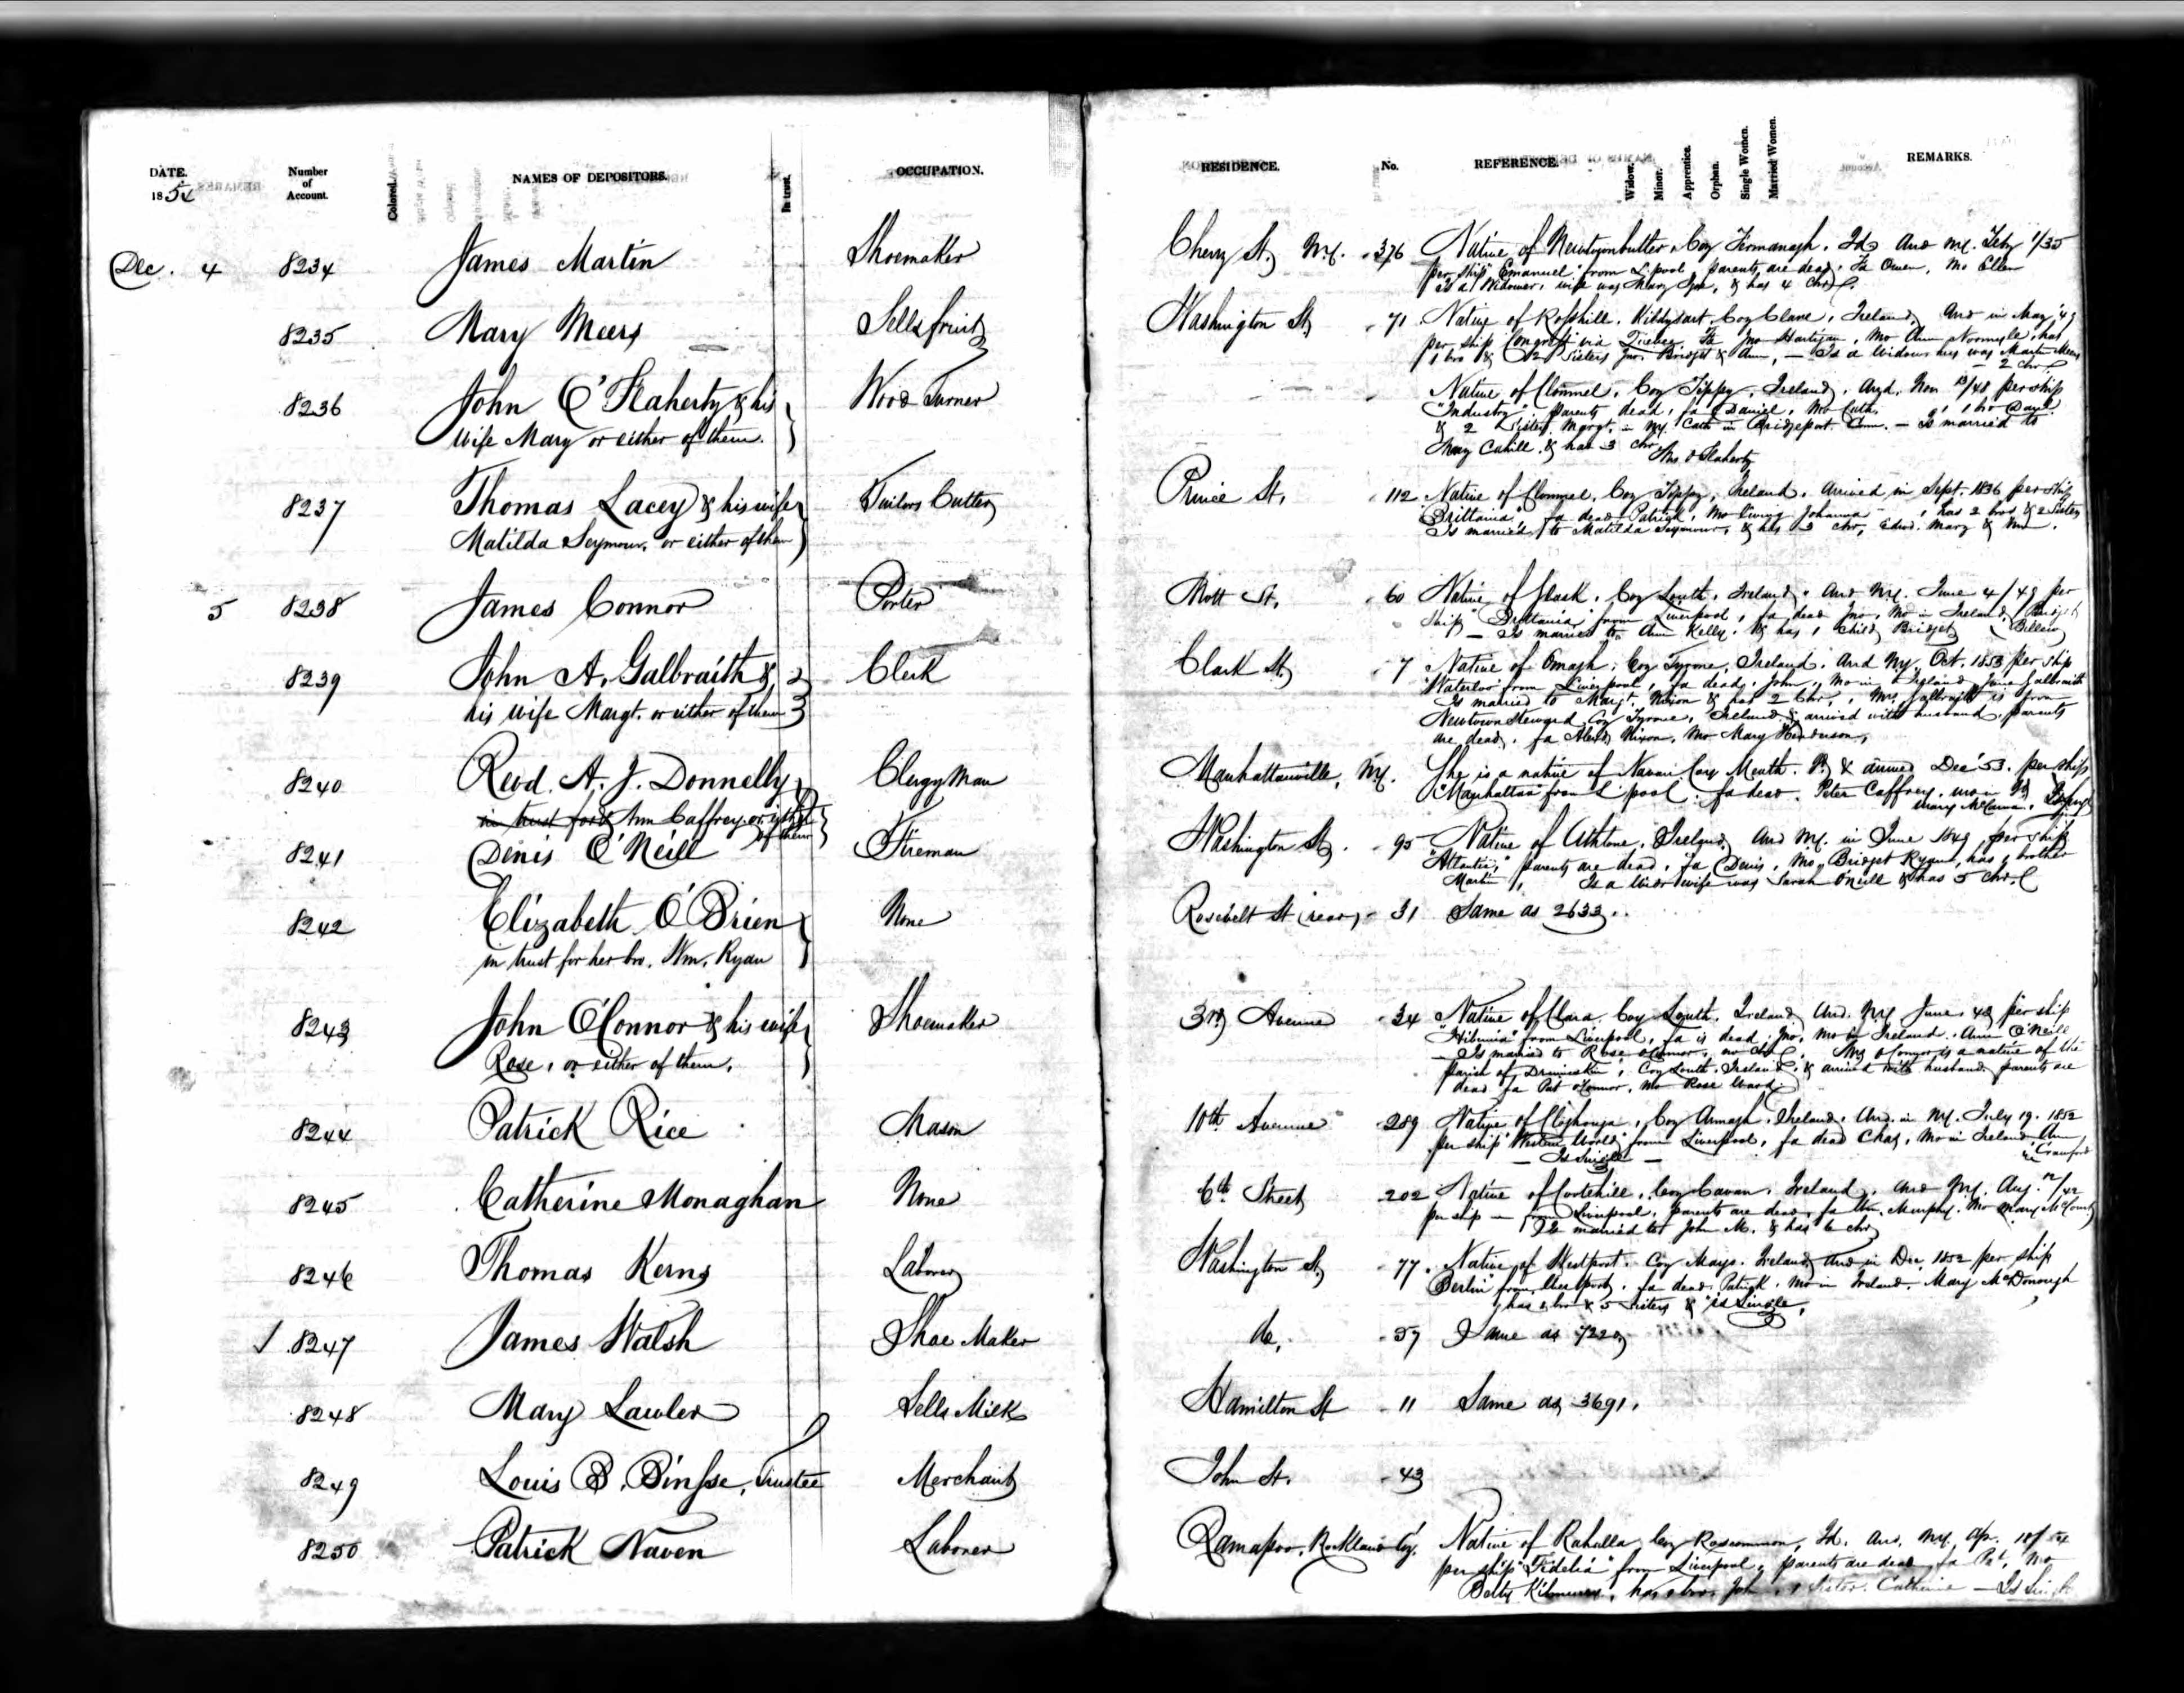 DATE. Number of Account. Colored. NAMES OF DEPOSITORS. In trust. OCCUPATION. RESIDENCE. No. REFERENCE. Widow. Minor. Apprentice. Orphan. Single Women. Married Women. REMARKS.
1854
Dec. 4 8234 James Martin Shoemaker Cherry St. N.Y. 376 Native of Newtownbutler, Coy Fermanagh, Id. Arrd N.Y. Feby 1/35
per ship "Emanuel" from L'pool, parents are dead, Fa Owen, Mo Ellen
Is a Widower, wife was Mary & has 4 Chn.
8235 Mary Meers Sells fruit Washington St. 71 Native of Rosshill, Kildysart, Coy Clare, Ireland, Arrd in May '49
per ship via Quebec, Fa Jno Hartigan, Mo Ann Normyle, has
1 bro & 2 Sisters Jno. Bridget & Ann, — Is a Widow hus was Martin Meers
— 2 Chn
8236 John O'Flaherty & his Wood Turner Native of Clonmel, Coy Tippy, Ireland, Arrd. Nov 13/48 per ship
wife Mary or either of them. "Industry", parents dead, fa Daniel, Mo Cath. 1 bro Danl.
& 2 Sisters Margt. in N.Y. Cath in Bridgeport Conn. — Is married to
Mary Cahill, & has 3 chn
Mrs O'Flaherty
8237 Thomas Lacey & his wife Tailors Cutter Prince St. 112 Native of Clonmel, Coy Tippy, Ireland. Arrived in Sept. 1836 per ship
Matilda Seymour, or either of them "Brittania" fa dead Patrick, Mo living Johanna, has 2 bros & 2 Sisters
Is married to Matilda Seymour, & has 3 chn, Edwd. Mary &
5 8238 James Connor Porter Mott St. 60 Native of Coy Louth, Ireland. Arrd N.Y. June 4/49 per
ship "Brittania" from Liverpool, fa dead Jno, Mo in Ireland, Bridget
— Is married to Ann Kelly, & has 1 child Bridget
8239 John A. Galbraith & Clerk Clark St. 7 Native of Omagh, Coy Tyrone, Ireland. Arrd N.Y. Oct. 1853 per ship
his wife Margt. or either of them "Waterloo" from Liverpool, fa dead, John, Mo in Galbraith
Is married to Margt. Nixon & has 2 Chn, Mrs. Galbraith is from
Newtownsteward Coy Tyrone, Ireland & arrived with husband, parents
are dead, fa Alexr. Nixon, Mo Mary Henderson,
8240 Revd. A. J. Donnelly Clergyman Manhattanville, N.Y. She is a native of Navan Coy Meath. Id & arrived Dec '53. per ship
in trust for & Ann Caffrey or either of them "Manhattan" from L'pool. fa dead. Peter Caffrey. mo in Id
Mary McCanna.
8241 Denis O'Neill Fireman Washington St. 95 Native of Athlone, Ireland, Arrd N.Y. in June 1849, per ship
"Atlantic," parents are dead, fa Denis, Mo Bridget Ryan, has 1 brother
Martin, Is a Widr wife was Sarah O'Neill & has 5 chn.
8242 Elizabeth O'Brien None Rosevelt St (rear) 31 Same as 2633.
in trust for her bro. Wm. Ryan
8243 John O'Connor & his wife Shoemaker 3rd Avenue 34 Native of Clara Coy Louth. Ireland Arrd. N.Y. June 43 per ship
Rose, or either of them. "Hibernia" from Liverpool, fa is dead, Jno, Mo in Ireland. Ann O'Neill
— Is married to Rose O'Connor, no Ch. Mrs O'Connor is a native of the
parish of Drumiskin, Coy Louth, Ireland, & arrived with husband, parents are
dead, fa Pat O'Connor, Mo Rose Ward.
8244 Patrick Rice Mason 10th Avenue 289 Native of Coy Armagh, Ireland. Arrd. in N.Y. July 19. 1852
per ship "Western World" from Liverpool, fa dead Chas, Mo in Ireland Ann
— Is Single — Crawford
8245 Catherine Monaghan None 6th Street 202 Native of Cootehill, Coy Cavan, Ireland, Arrd N.Y. Aug. /42
per ship — from Liverpool, parents are dead, fa Murphy. Mo Mary
Is married to John M. & has 6 chn
8246 Thomas Kerns Laborer Washington St. 77. Native of Westport. Coy Mayo. Ireland, Arrd in Dec. 1852 per ship
"Berlin" from Liverpool, fa dead, Patrick. Mo in Ireland. Mary McDonough
has 2 bro & 5 Sisters & is single,
8247 James Walsh Shoe Maker do, 59 Same as 7220
8248 Mary Lawler Sells Milk Hamilton St 11 Same as 3691.
8249 Louis B. Binsse, Trustee Merchant John St. 43
8250 Patrick Naven Laborer Ramapoo, Rockland Cy. Native of Rahella, Coy Roscommon, Id. Arr. N.Y. Ap. 10/54
per ship "Fidelia" from Liverpool, parents are dead, fa Pat, Mo
Betty has 1 bro. John, 1 Sister. Catherine — Is Single